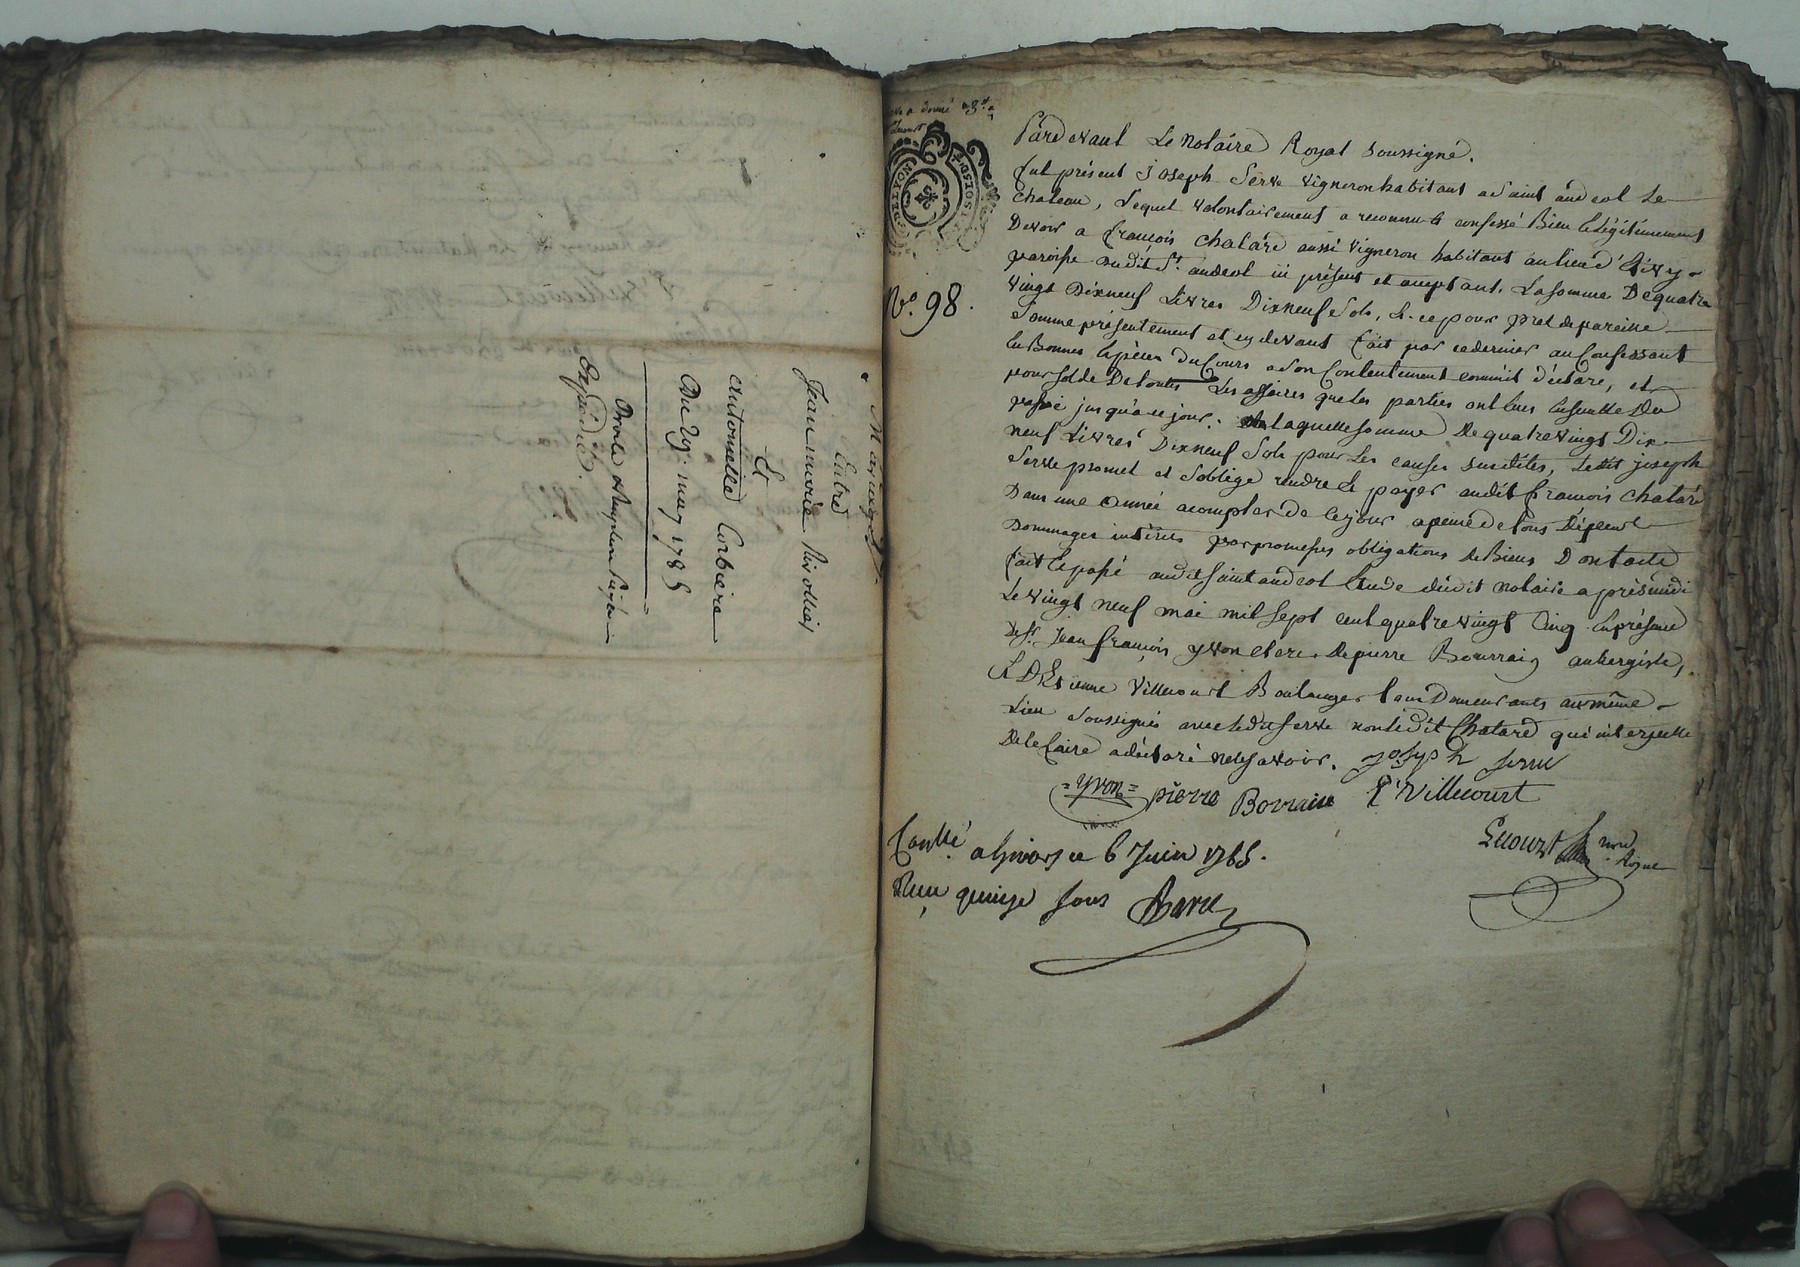 Mariage
Entre
Jean marie Rivollier
Et
antoinette Corbiere
Du 29: may 1785
Expédié.
No. 98.
Pardevant Le Notaire Royal soussigné.
fut présent Joseph Serve vigneron habitant a saint andeol Le
Chateau, Lequel volontairement a reconnu & confessé Bien & Légitimement
Devoir a françois Chatard aussi vigneron habitant au lieu d'
paroisse dudit St. andeol ici présent et acceptant. La somme De quatre
vingt Dixneuf Livres Dixneuf Sols, & ce pour pret de pareille
Somme présentement et cy devant fait par ce dernier au Confessant
En Bonnes Espèces Du Cours a son Contentement comm'il déclare, et
pour solde De toutes Les affaires que les parties ont Eues Ensemble Du
passé jusqu'a ce jour. laquelle somme De quatre vingt Dix
neuf Livres Dixneuf Sols pour Les causes susdites, Ledit joseph
Serve promet et s'oblige rendre & payer audit françois Chatard
Dans une Année a compter de ce jour a peine de tous Dépens
Dommages intérêts par promesses obligations de Biens Dont acte
fait & passé audit saint andeol Etude dudit notaire a présmidi
Le vingt neuf mai mil sept cent quatre vingt Cinq En présence
De Sr. Jean françois yvon clerc. De pierre Bourrain aubergiste,
& D'Etienne Villecourt Boulanger tous Demeurants au même
Lieu Soussignés avec ledit serve non ledit Chatard qui interpellé
De le faire a déclaré ne le savoir. Joseph serve
=yvon= pierre Borraine E. Villecourt
Controllé a givors ce 6 Juin 1785.
Reçu quinze sous